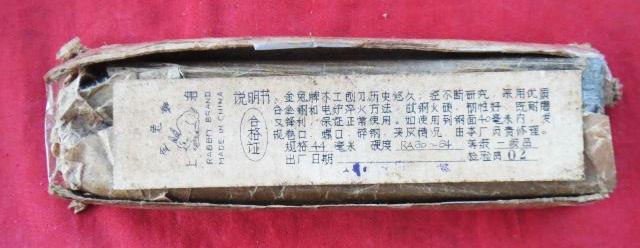 金兔牌
RABBIT BRAND
MADE IN CHINA
说明书
合格证
金兔牌木工刨刃历史悠久，经不断研究，采用优质
合金钢和电炉淬火方法，故钢火硬，韧性好，既耐磨
又锋利，保证正常使用。如使用到钢面40毫米内，发
现卷口，崩口，碎钢，夹灰情况，由本厂负责修理。
规格44毫米 硬度 RA80～84 等级 一级品
出厂日期 检验员02